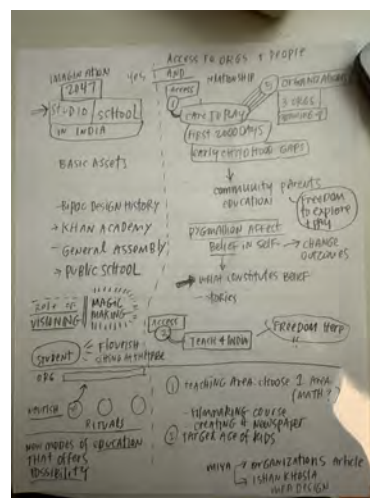 ACCESS TO ORGS & PEOPLE
IMAGINATION
2047
yes AND relationship
STUDIO SCHOOL
IN INDIA
BASIC ASSETS
- BIPOC DESIGN HISTORY
→ KHAN ACADEMY
- GENERAL ASSEMBLY
→ PUBLIC SCHOOL
ROLE OF
VISIONING
MAGIC
MAKING
STUDENT
FLOURISH
ORG
RITUALS
NEW MODES OF EDUCATION
THAT OFFERS
POSSIBILITY
ACCESS
1
5 ORGANIZATIONS
3 ORGS
CARE TO PLAY
FIRST 2000 DAYS
EARLY CHILDHOOD GAPS
COMMUNITY PARENTS
EDUCATION
FREEDOM
to explore
& PLAY
PYGMALION AFFECT
BELIEF IN SELF → CHANGE
OUTCOMES
→ WHAT CONSTITUTES BELIEF
- stories
ACCESS
2
TEACH 4 INDIA
FREEDOM HERE
1 TEACHING AREA: CHOOSE 1 AREA
(MATH?)
- FILMMAKING COURSE
CREATING A NEWSPAPER
2 TARGET AGE OF KIDS
MIYA → ORGANIZATIONS article
→ ISHAN KHOSLA
DESIGN